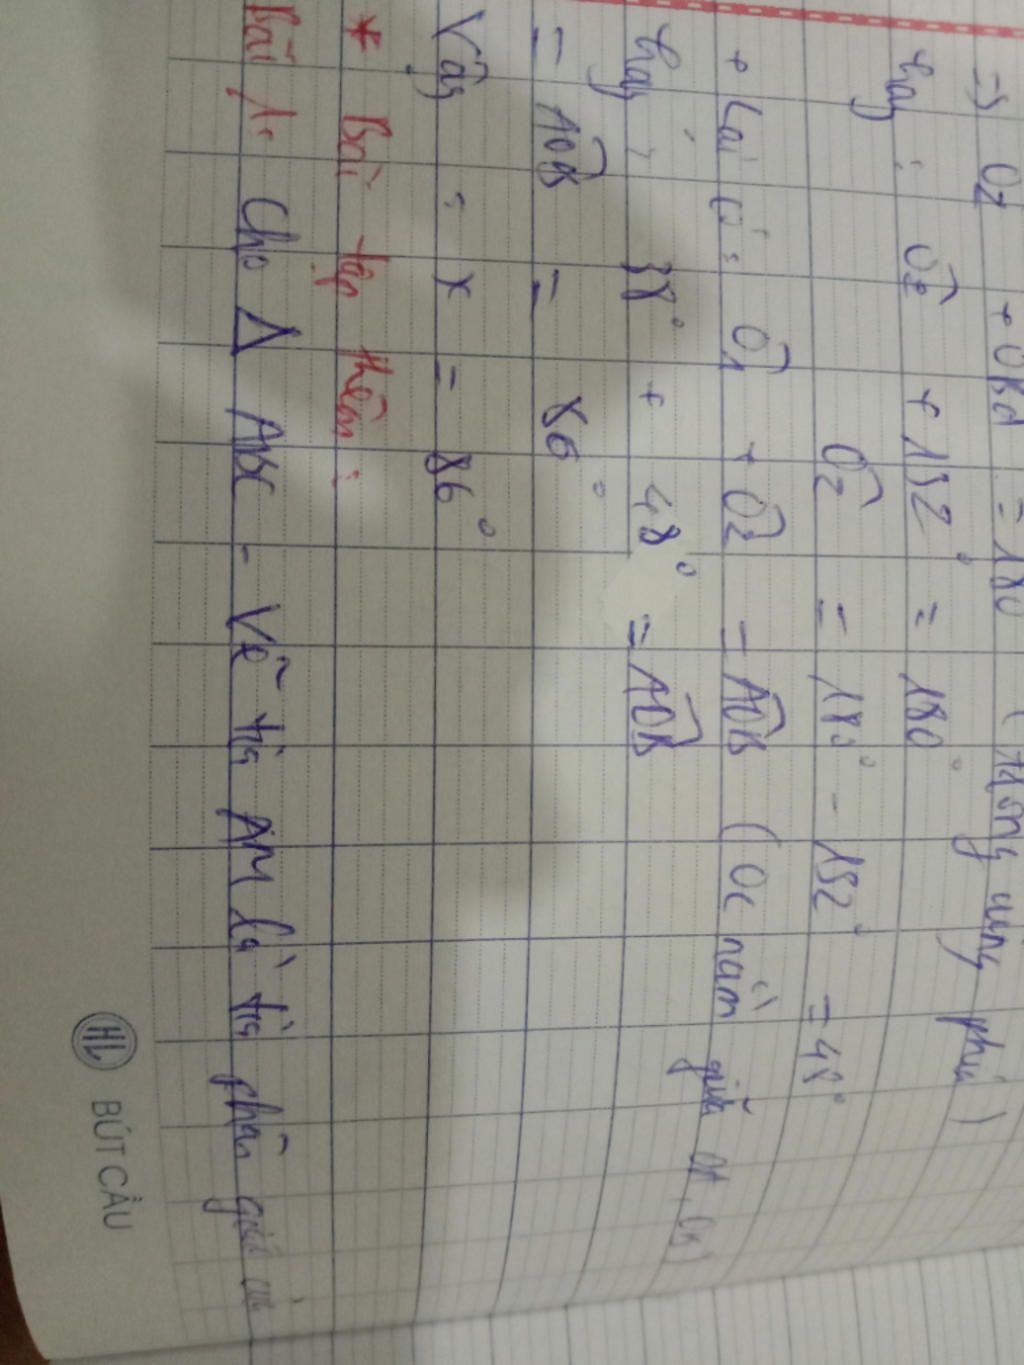 => O₂ + OBd = 180 (trong cùng phía)
hay : Ô₂ + 132° = 180°
Ô₂ = 180° - 132° = 48°
+ Lại có: Ô₁ + Ô₂ = AÔB (Oc nằm giữa OA, OB)
hay : 38° + 48° = AÔB
= AÔB = 86°
Vậy : x = 86°
* Bài tập thêm :
Bài 1: Cho Δ ABC - Vẽ tia AM là tia phân giác của
HL BÚT CẦU